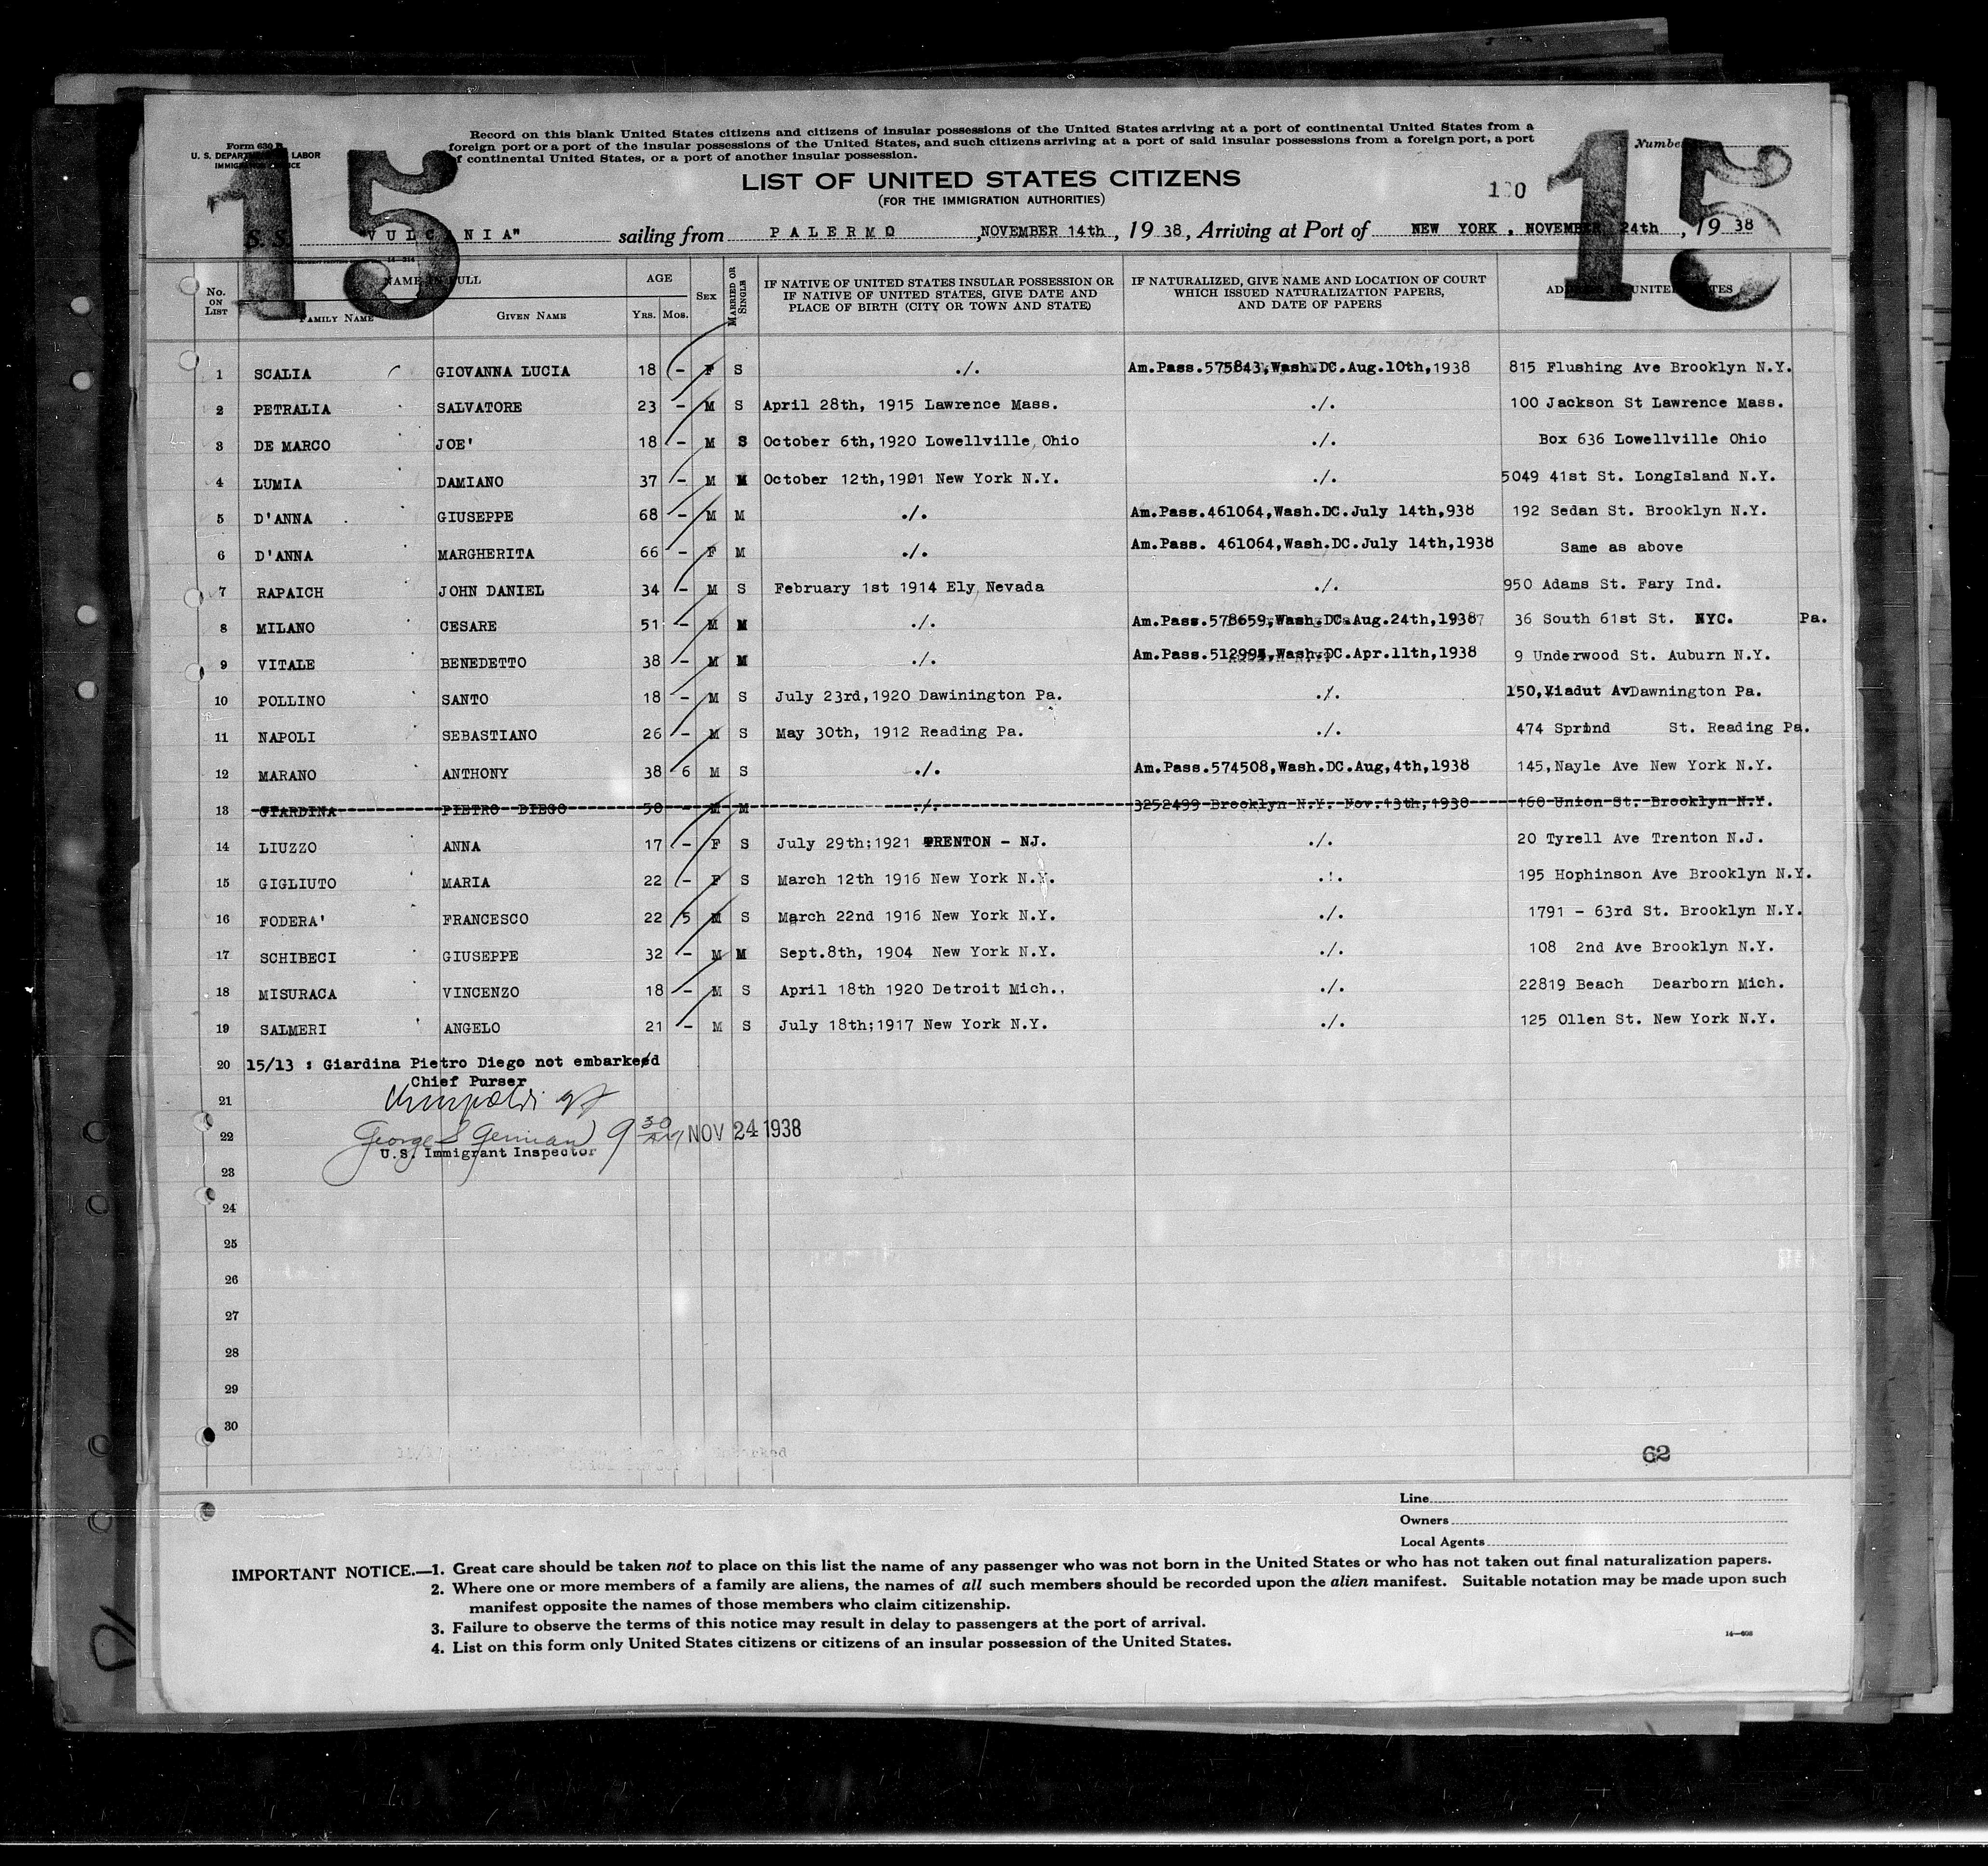 Form 630
U. S. DEPARTMENT OF LABOR
IMMIGRATION SERVICE
Record on this blank United States citizens and citizens of insular possessions of the United States arriving at a port of continental United States from a
foreign port or a port of the insular possessions of the United States, and such citizens arriving at a port of said insular possessions from a foreign port, a port
of continental United States, or a port of another insular possession.
Number
15
15
LIST OF UNITED STATES CITIZENS
(FOR THE IMMIGRATION AUTHORITIES)
S. S. "VULCANIA" sailing from PALERMO, NOVEMBER 14th, 1938, Arriving at Port of NEW YORK, NOVEMBER 24th, 1938
No. ON LIST NAME IN FULL FAMILY NAME GIVEN NAME AGE YRS. MOS. SEX MARRIED OR SINGLE IF NATIVE OF UNITED STATES INSULAR POSSESSION OR IF NATIVE OF UNITED STATES, GIVE DATE AND PLACE OF BIRTH (CITY OR TOWN AND STATE) IF NATURALIZED, GIVE NAME AND LOCATION OF COURT WHICH ISSUED NATURALIZATION PAPERS, AND DATE OF PAPERS ADDRESS IN UNITED STATES
1 SCALIA GIOVANNA LUCIA 18 - F S ./. Am.Pass.575843,Wash.DC.Aug.10th,1938 815 Flushing Ave Brooklyn N.Y.
2 PETRALIA SALVATORE 23 - M S April 28th, 1915 Lawrence Mass. ./. 100 Jackson St Lawrence Mass.
3 DE MARCO JOE' 18 - M S October 6th,1920 Lowellville, Ohio ./. Box 636 Lowellville Ohio
4 LUMIA DAMIANO 37 - M M October 12th,1901 New York N.Y. ./. 5049 41st St. LongIsland N.Y.
5 D'ANNA GIUSEPPE 68 - M M ./. Am.Pass.461064,Wash.DC.July 14th,938 192 Sedan St. Brooklyn N.Y.
6 D'ANNA MARGHERITA 66 - F M ./. Am.Pass. 461064,Wash.DC.July 14th,1938 Same as above
7 RAPAICH JOHN DANIEL 34 - M S February 1st 1914 Ely, Nevada ./. 950 Adams St. Fary Ind.
8 MILANO CESARE 51 - M M ./. Am.Pass.578659,Wash.DC.Aug.24th,1938 36 South 61st St. NYC. Pa.
9 VITALE BENEDETTO 38 - M M ./. Am.Pass.512994,Wash.DC.Apr.11th,1938 9 Underwood St. Auburn N.Y.
10 POLLINO SANTO 18 - M S July 23rd,1920 Dawinington Pa. ./. 150,Viadut AvDawnington Pa.
11 NAPOLI SEBASTIANO 26 - M S May 30th, 1912 Reading Pa. ./. 474 Sprind St. Reading Pa.
12 MARANO ANTHONY 38 6 M S ./. Am.Pass.574508,Wash.DC.Aug,4th,1938 145,Nayle Ave New York N.Y.
13 GIARDINA PIETRO DIEGO 50 - M M ./. 3252499 Brooklyn N.Y. Nov.13th,1930 160 Union St. Brooklyn N.Y.
14 LIUZZO ANNA 17 - F S July 29th;1921 TRENTON - NJ. ./. 20 Tyrell Ave Trenton N.J.
15 GIGLIUTO MARIA 22 - F S March 12th 1916 New York N.Y. ./. 195 Hophinson Ave Brooklyn N.Y.
16 FODERA' FRANCESCO 22 5 M S March 22nd 1916 New York N.Y. ./. 1791 - 63rd St. Brooklyn N.Y.
17 SCHIBECI GIUSEPPE 32 - M M Sept.8th, 1904 New York N.Y. ./. 108 2nd Ave Brooklyn N.Y.
18 MISURACA VINCENZO 18 - M S April 18th 1920 Detroit Mich.. ./. 22819 Beach Dearborn Mich.
19 SALMERI ANGELO 21 - M S July 18th;1917 New York N.Y. ./. 125 Ollen St. New York N.Y.
20 15/13 : Giardina Pietro Diego not embarkeed
Chief Purser
21
22 George S German 9 30 AM NOV 24 1938
U.S. Immigrant Inspector
23
24
25
26
27
28
29
30
62
Line
Owners
Local Agents
IMPORTANT NOTICE.—1. Great care should be taken not to place on this list the name of any passenger who was not born in the United States or who has not taken out final naturalization papers.
2. Where one or more members of a family are aliens, the names of all such members should be recorded upon the alien manifest. Suitable notation may be made upon such
manifest opposite the names of those members who claim citizenship.
3. Failure to observe the terms of this notice may result in delay to passengers at the port of arrival.
4. List on this form only United States citizens or citizens of an insular possession of the United States.
14—608